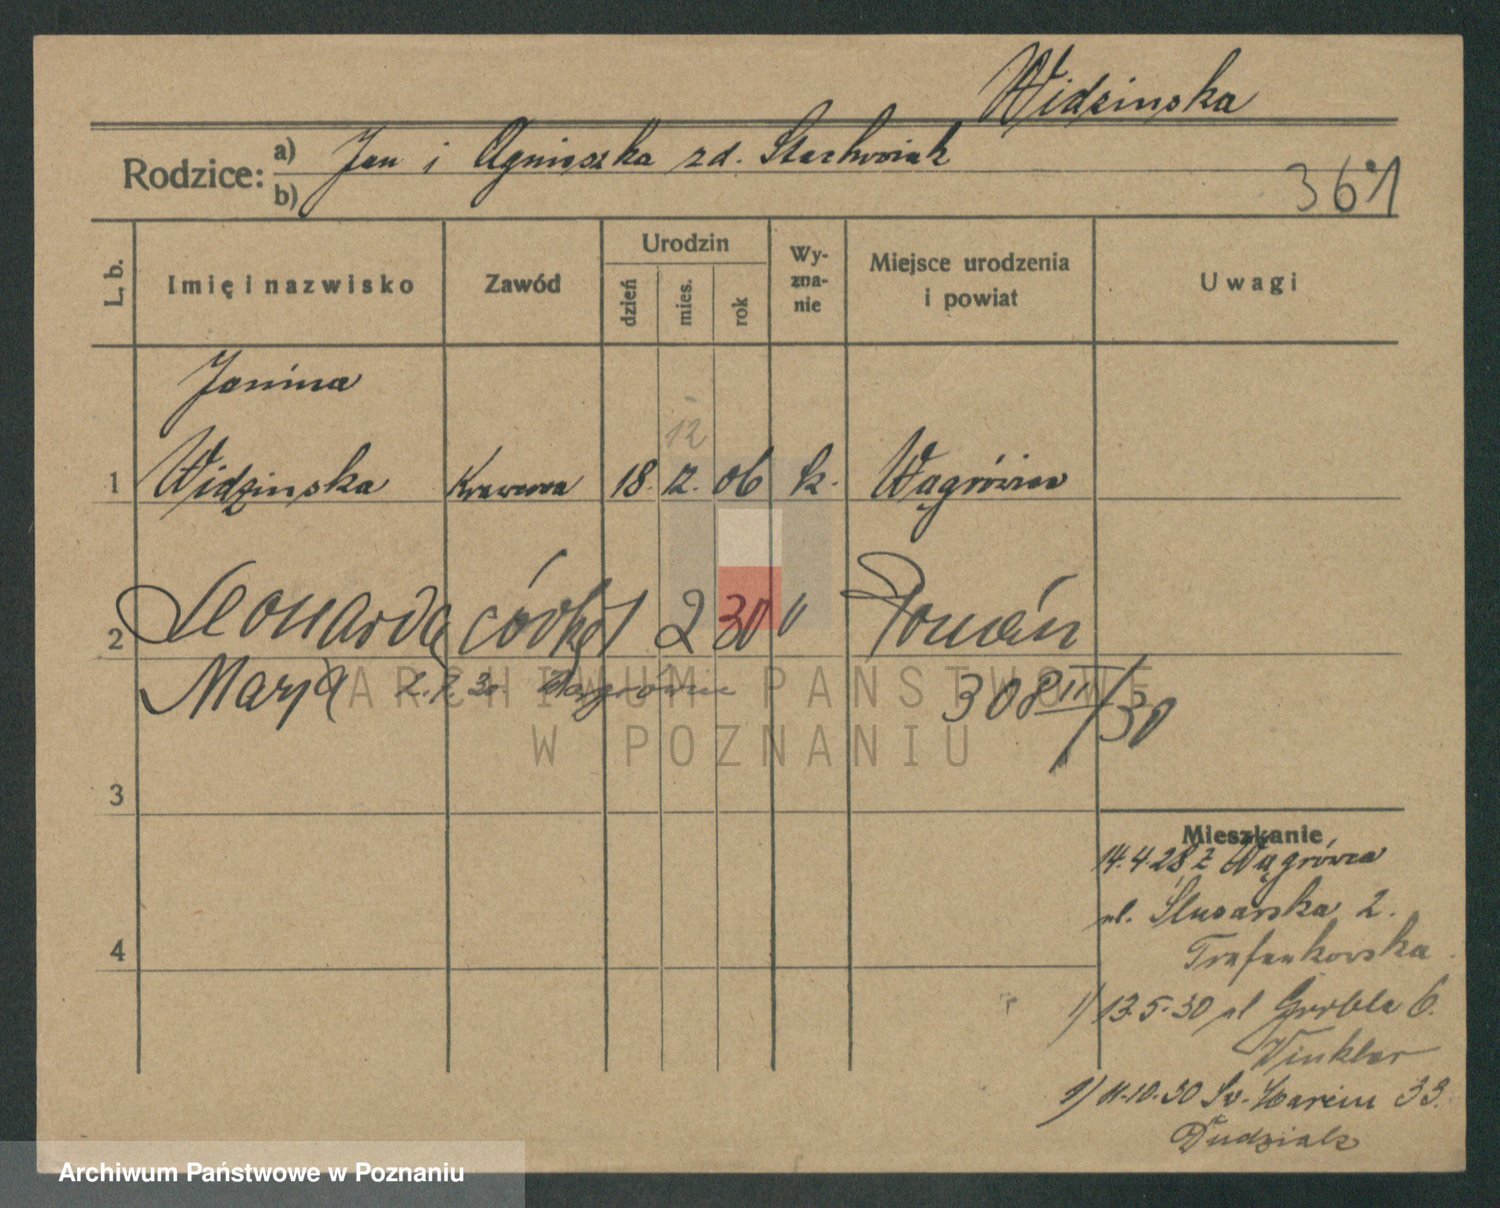 Widzinska
Rodzice: a) Jan i Agnieszka zd. Stachowiak
b)
361
L. b. Imię i nazwisko Zawód Urodzin dzień mies. rok Wy-zna-nie Miejsce urodzenia i powiat Uwagi
Janina
12
1 Widzinska Krawcowa 18. 12. 06 k. Wągrówiec
2 Leonarda córka 1 2 30 " Poznań
Marja 2. 7. 30. Wągrówiec 308 III/30
ARCHIWUM PAŃSTWOWE
W POZNANIU
3
Mieszkanie
14.4.28 z Wągrówca
ul. Ślusarska 2.
4
13.5.30 ul Grobla 6.
Winkler
1) 11-10-30 Św. Marcin 33.
Dudziak
Archiwum Państwowe w Poznaniu